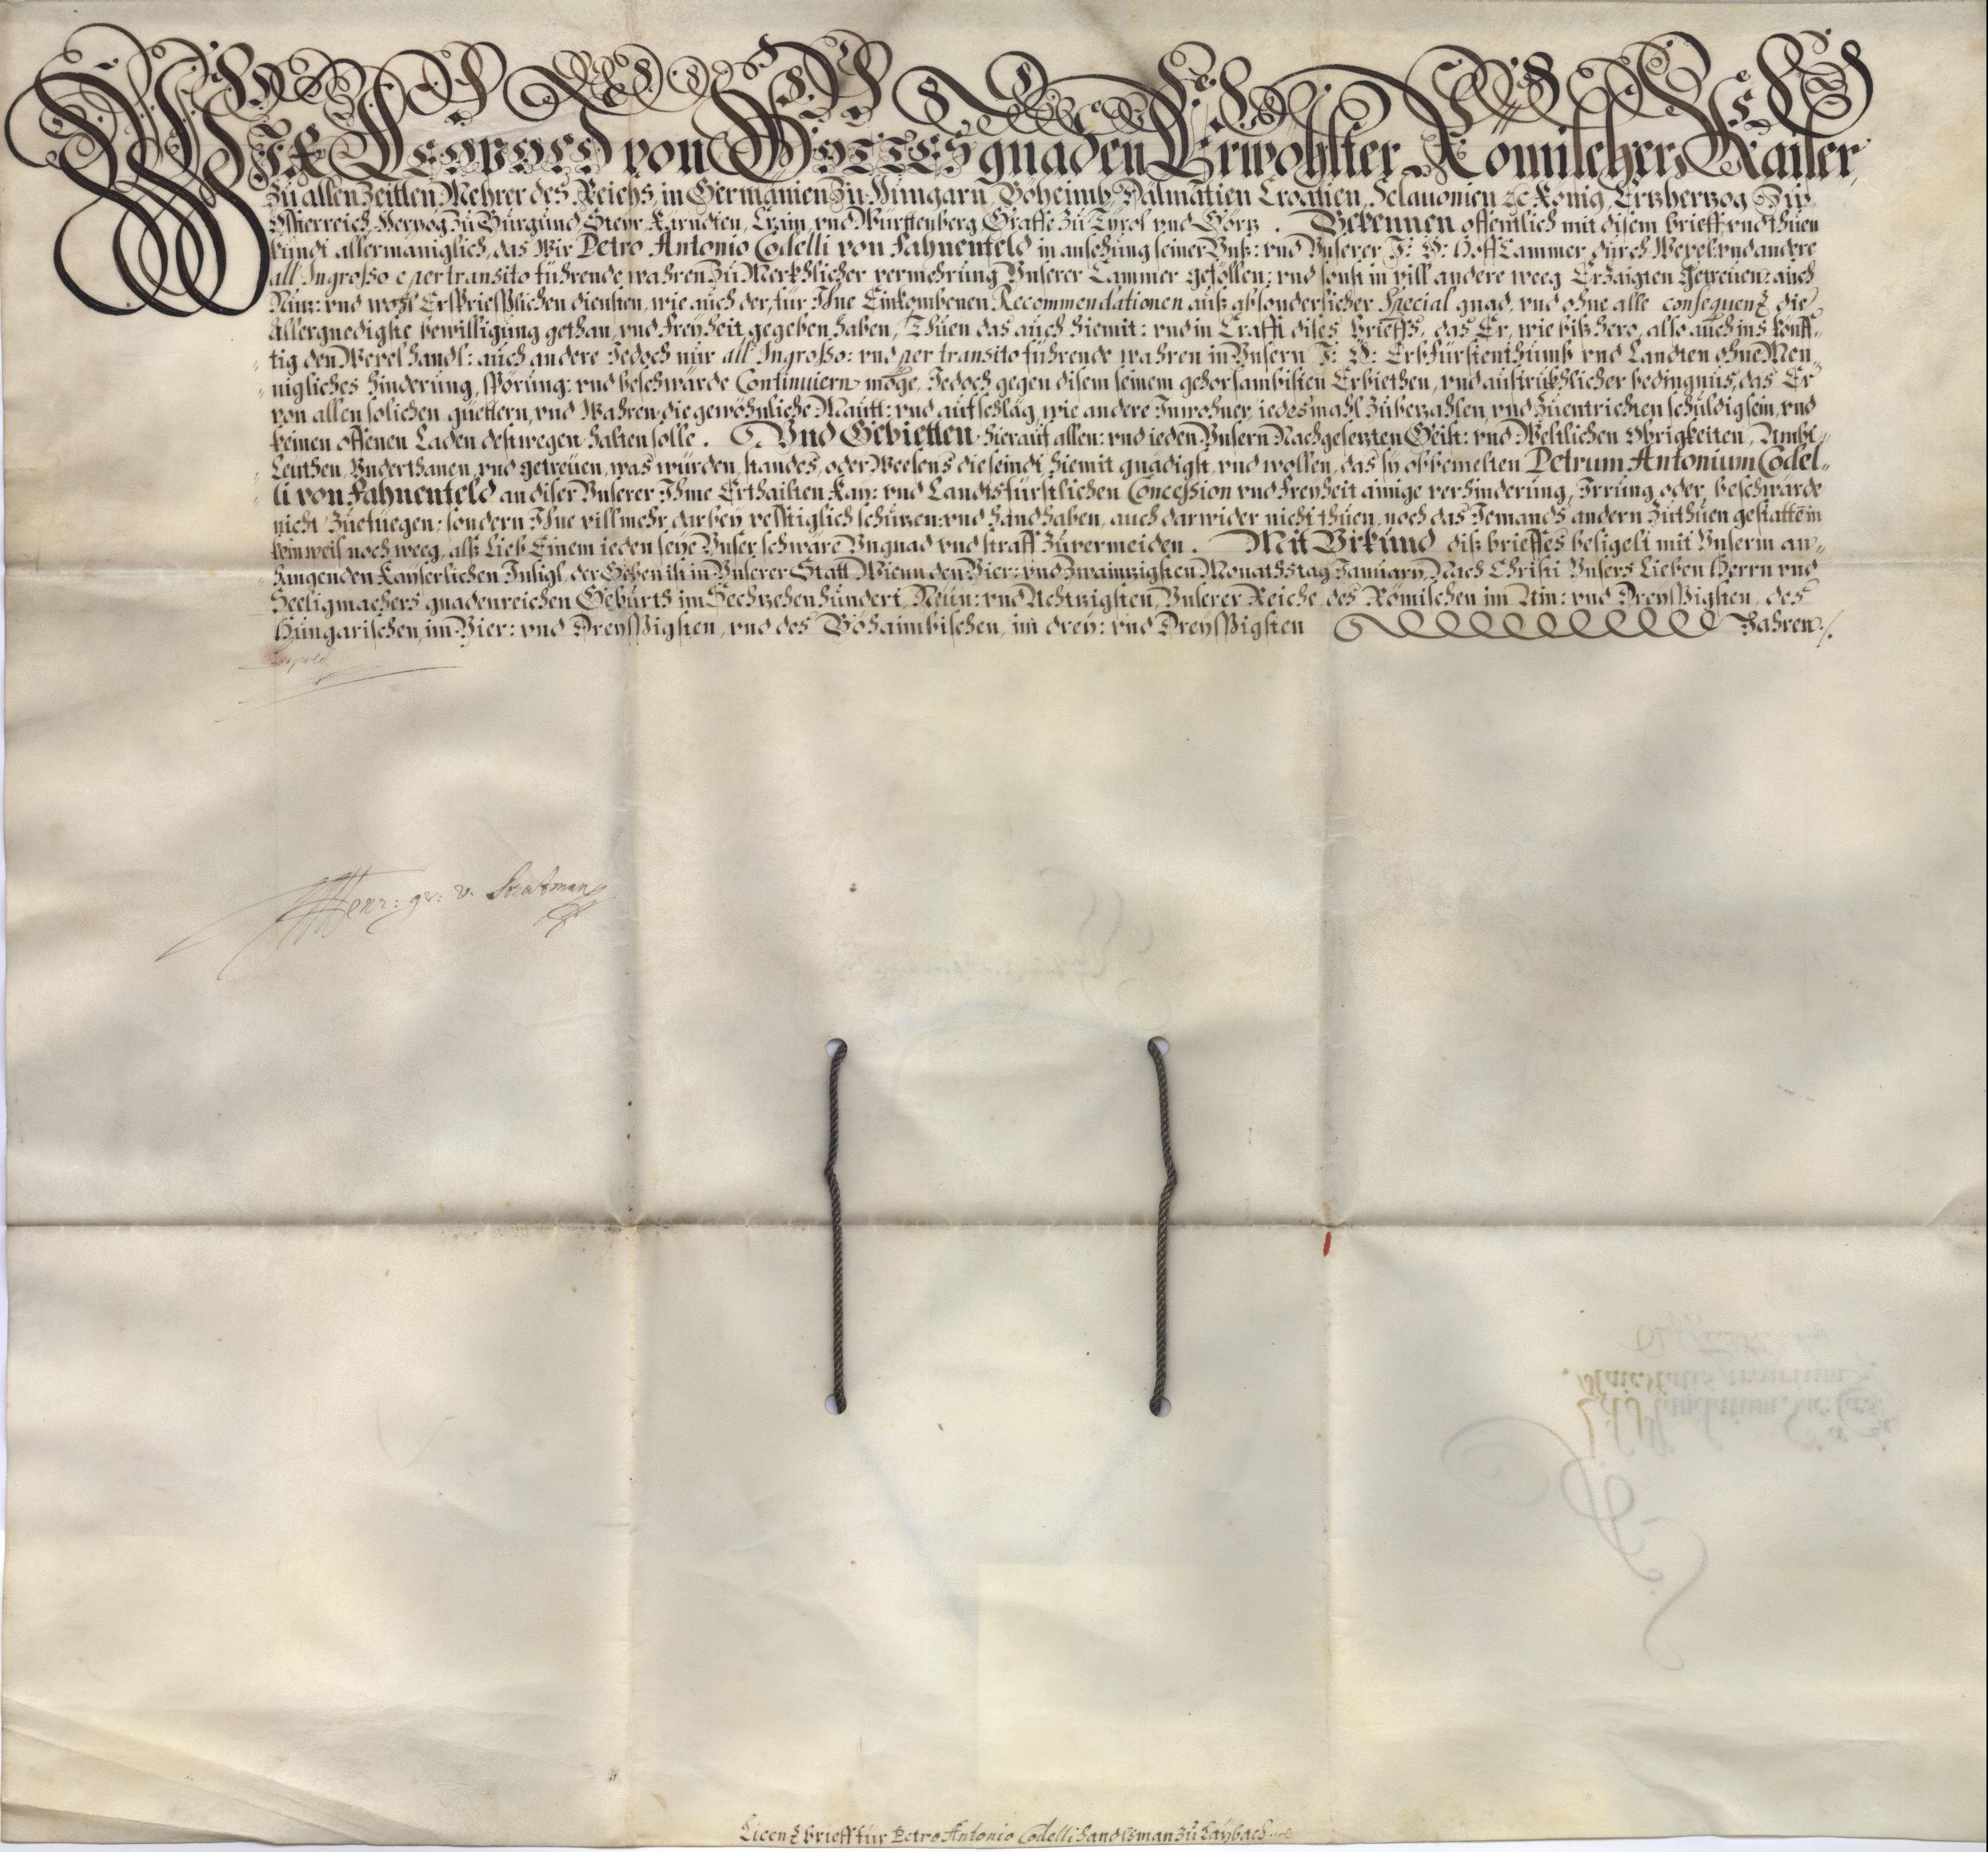 Wir Leopold von Gottes gnaden Erwöhlter Römischer Kaiser,
Zu allen Zeitten Mehrer des Reichs, in Germanien, Zu Hungarn, Böheimb, Dalmatien, Croatien, Sclauonien ꝛc König, Ertzherzog Zu
Össterreich, Herzog Zu Burgund, Steyr, Kärndten, Crain, vnd Würtenberg, Graffe Zu Tyrol vnd Görz. Bekennen offentlich mit disem brieff, vnd thuen
kundt allermaniglich, das Wir Petro Antonio Codelli von Fahnenfeld in ansehung seiner Vnß: vnd Vnserer I: Ö: HoffCammer, durch Wexel: vnd andere
all Ingrosso e per transito führende wahren Zu Merkhlicher vermehrung Vnserer Cammer gefällen: vnd sonst in vill andere weeg Erzaigten getreuen: auch
Nuz: vnd wohl Ersprießlichen diensten, wie auch der, für Ihne Einkombenen Recommendationen auß absonderlicher Special gnad, vnd ohne alle consequenz die
Allergnedigste bewilligung gethan, vnd Freyheit gegeben haben, Thuen das auch hiemit: vnd in Crafft dises brieffs, das Er, wie biß hero, also auch ins könff-
tig den Wexel handl: auch andere Jedoch nur all' Ingrosso: vnd per transito führende wahren in Vnsern I: Ö: Erbfürstenthumb vnd Landten ohne Men-
nigliches hinderung, spörung: vnd beschwärde Continuiern möge, Jedoch gegen disem seinem gehorsambisten Erbiethen, vnd austrukhlicher bedingnus, das Er
von allen solichen güettern, vnd Wahren die gewöhnliche Mautt: vnd aufschläg, wie andere Inwohner, iedesmahl Zubezahlen, vnd Zuentrichten schuldig sein, vnd
keinen offenen Laden deßwegen halten solle. Vnd Gebietten hierauf allen: vnd ieden Vnsern Nachgesezten Geist: vnd Weltlichen Obrigkeiten, Ambt-
Leuthen, Vnderthanen, vnd getreuen, was würden, standes, oder Weesens die seindt, hiemit gnädigst, vnd wollen, das sy obbemelten Petrum Antonium Codel-
li von Fahnenfeld an diser Vnserer Ihme Erthailten Kay: vnd Landtsfürstlichen Concession vnd Freyheit ainige verhinderung, Irrung oder beschwärde
nicht Zuefuegen: sondern Ihne villmehr darbey vesstiglich schüzen: vnd handhaben, auch darwider nicht thuen, noch das Jemands andern Zuthuen gestatten in
kein weis noch weeg, alß Lieb Einem ieden seye Vnser schwäre Vngnad vnd straff Zuvermeiden. Mit Vrkund diß brieffes besigelt mit Vnserm an-
hangenden Kayserlichen Insigl, der Geben ist in Vnserer Statt Wienn den Vier: vnd Zwainzigsten Monathstag January, Nach Christi Vnsers Lieben Herrn vnd
Seeligmachers gnadenreichen Geburth im Sechzehenhundert, Neun: vnd Achtzigsten, Vnserer Reiche, des Römischen im Ain: vnd Dreyssigsten, des
Hungarischen im Vier: vnd Dreyssigsten, vnd des Böhaimbischen im drey: vnd Dreyssigsten Jahren ./.
Leopold
Henr: gr: v. Stratman
Licenz brieff für Petro Antonio Codelli handlsman zu Laybach